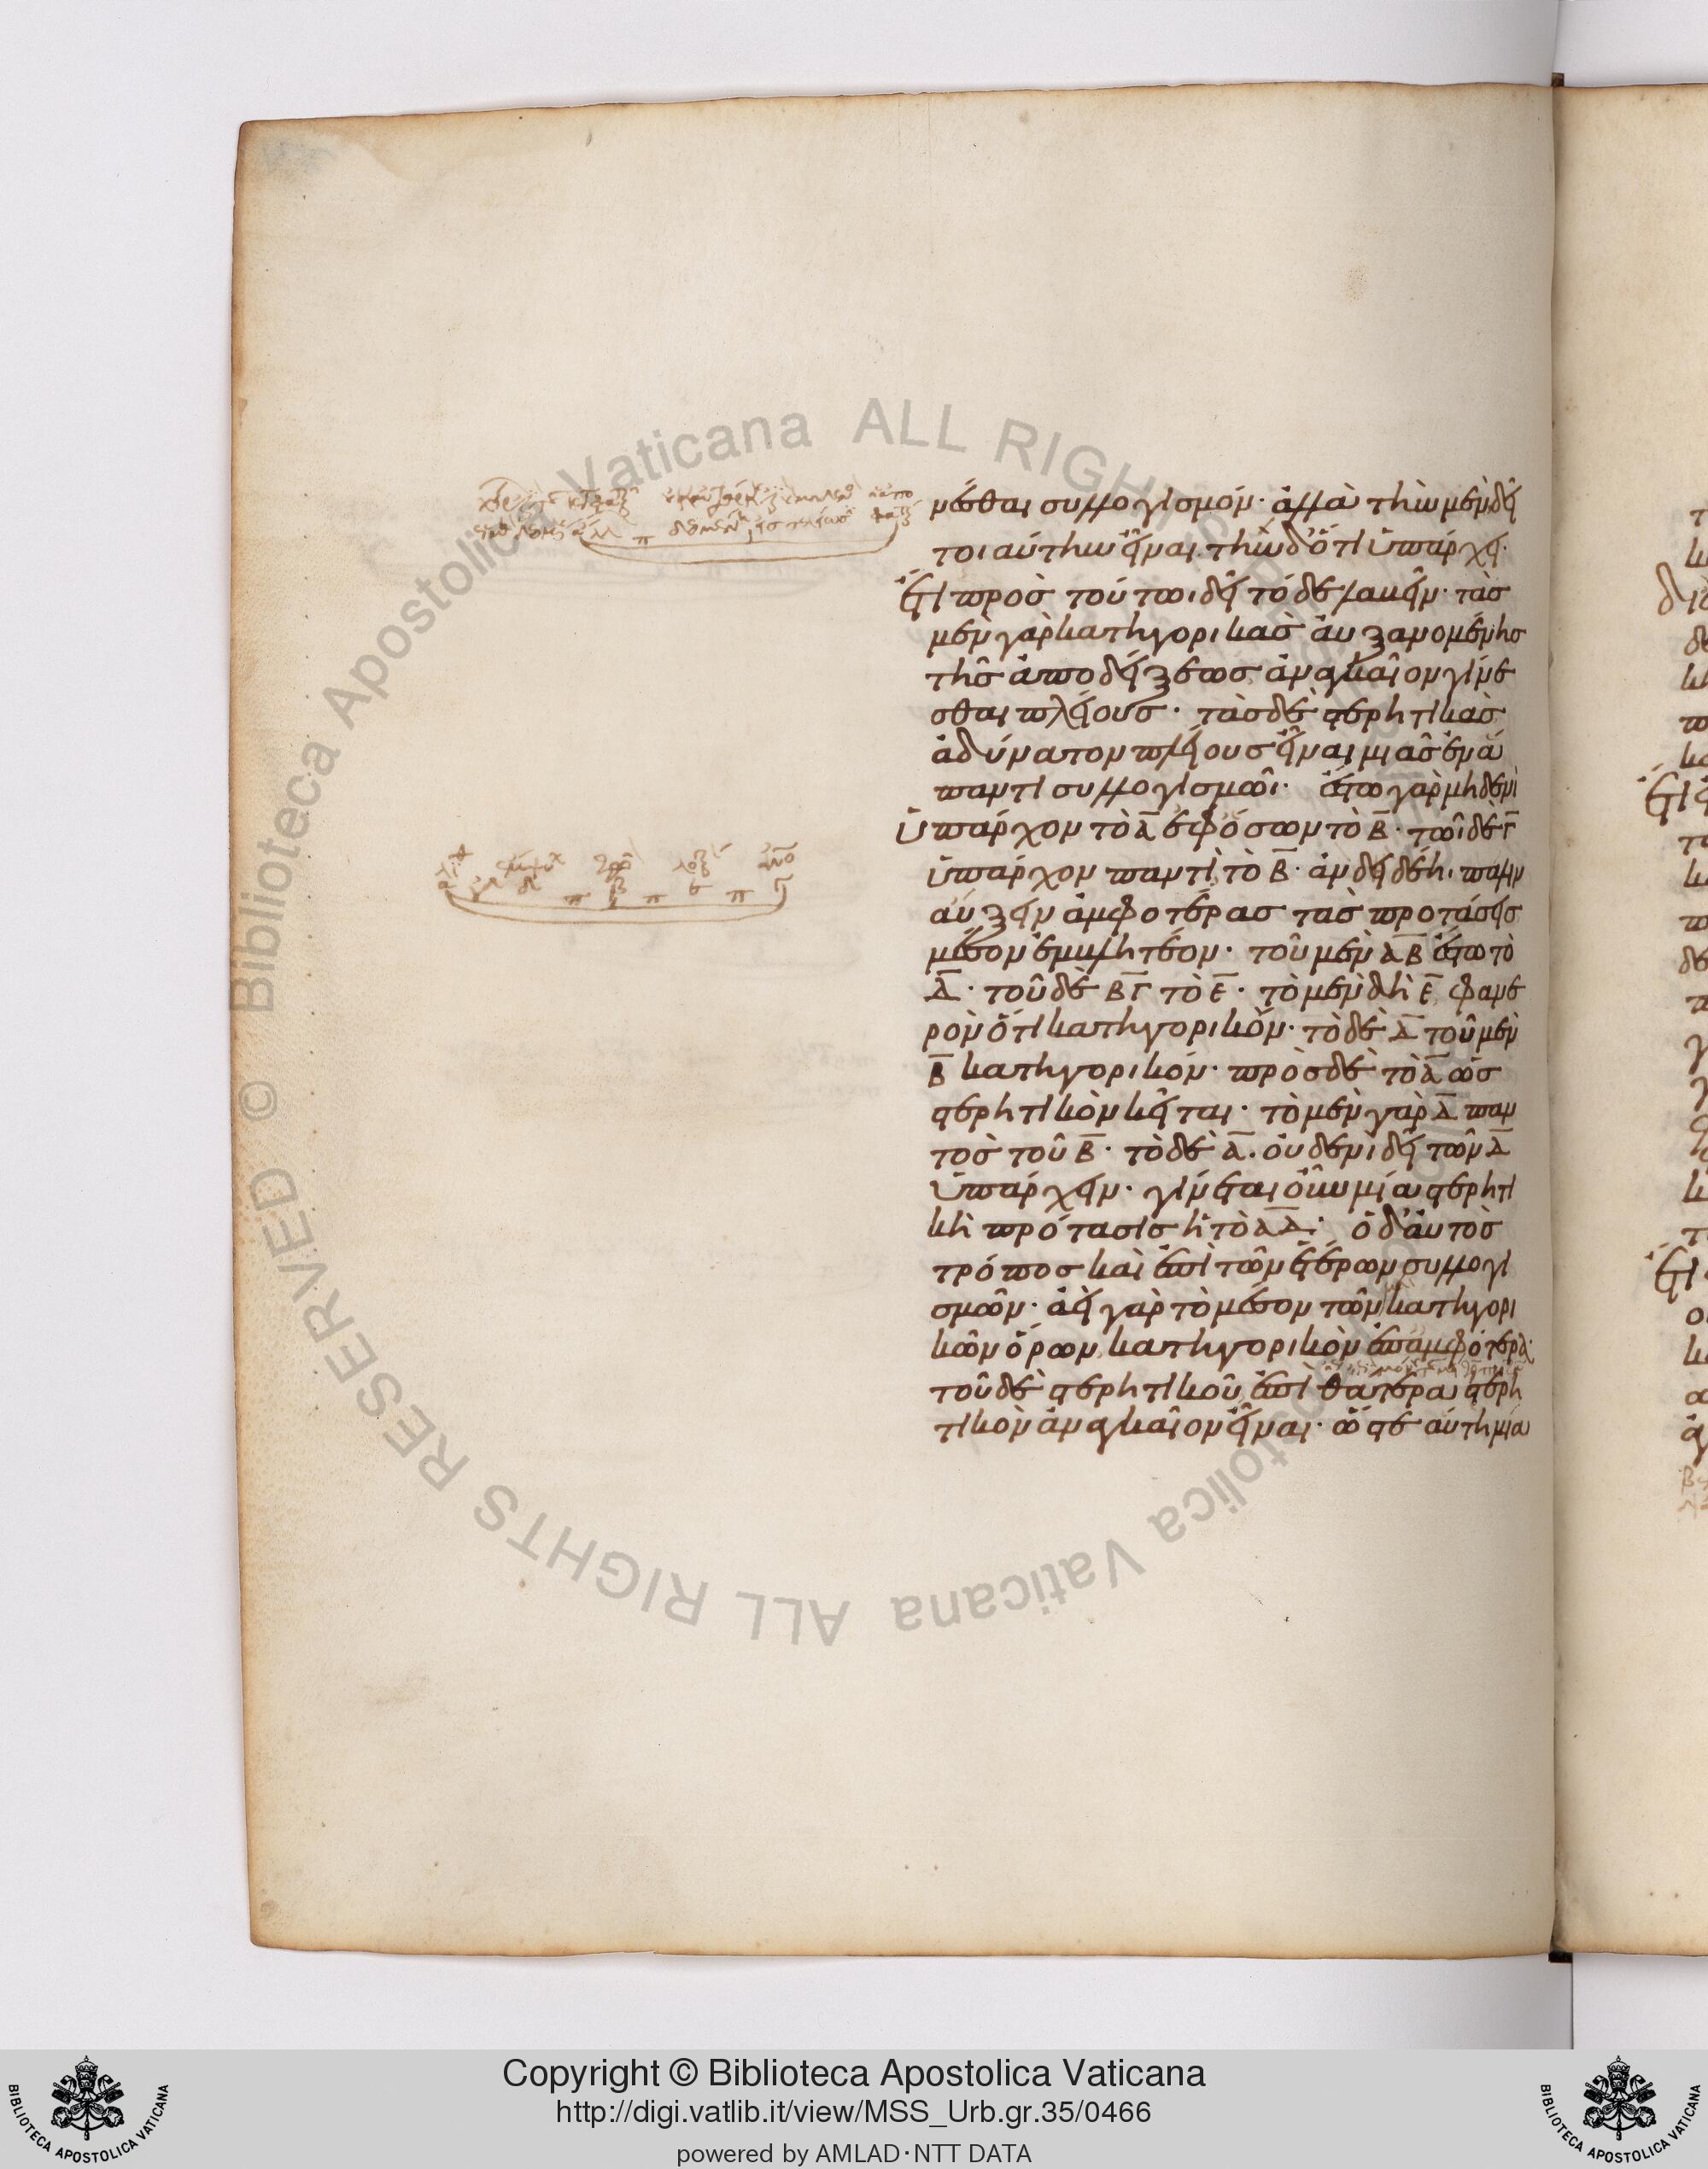 νεσθαι συλλογισμόν· ἀλλὰ τὴν μὲν δεῖ
τοιαύτην εἶναι τὴν δ' ὅτι ὑπάρχει·
ἔτι πρὸς τούτωι δεῖ τόδε λαβεῖν· τὰς
μὲν γὰρ κατηγορικὰς αὐξανομένης
τῆς ἀποδείξεως ἀναγκαῖον γίνε
σθαι πλείους· τὰς δὲ στερητικὰς
ἀδύνατον πλείους εἶναι μιᾶς ἐν ἅ
παντι συλλογισμῶι· ἔστω γὰρ μηδενὶ
ὑπάρχον τὸ Α ἐφ' ὅσων τὸ Β· τῶι δὲ Γ
ὑπάρχον παντὶ τὸ Β· ἂν δὴ δέηι πάλιν
αὔξειν ἀμφοτέρας τὰς προτάσεις
μέσον ἐμβλητέον· τοῦ μὲν ΑΒ ἔστω τὸ
Δ· τοῦ δὲ ΒΓ τὸ Ε· τὸ μὲν δὴ Ε φανε
ρὸν ὅτι κατηγορικόν· τὸ δὲ Δ τοῦ μὲν
Β κατηγορικόν· πρὸς δὲ τὸ Α ὡς
στερητικὸν κεῖται· τὸ μὲν γὰρ Δ παν
τὸς τοῦ Β· τὸ δὲ Α· οὐδενὶ δεῖ τῶν Δ
ὑπάρχειν· γίνεται οὖν μία στερητι
κὴ πρότασις ἡ τὸ ΑΔ· ὁ δ' αὐτὸς
τρόπος καὶ ἐπὶ τῶν ἑτέρων συλλογι
σμῶν· ἀεὶ γὰρ τὸ μέσον τῶν κατηγορι
κῶν ὅρων κατηγορικὸν ἐπ' ἀμφότερα·
τοῦ δὲ στερητικοῦ ἐπὶ θάτερα στερη
τικὸν ἀναγκαῖον εἶναι· ὥστε αὕτη μία
Copyright © Biblioteca Apostolica Vaticana
http://digi.vatlib.it/view/MSS_Urb.gr.35/0466
powered by AMLAD·NTT DATA
BIBLIOTECA APOSTOLICA VATICANA
BIBLIOTECA APOSTOLICA VATICANA
© Biblioteca Apostolica Vaticana ALL RIGHTS RESERVED